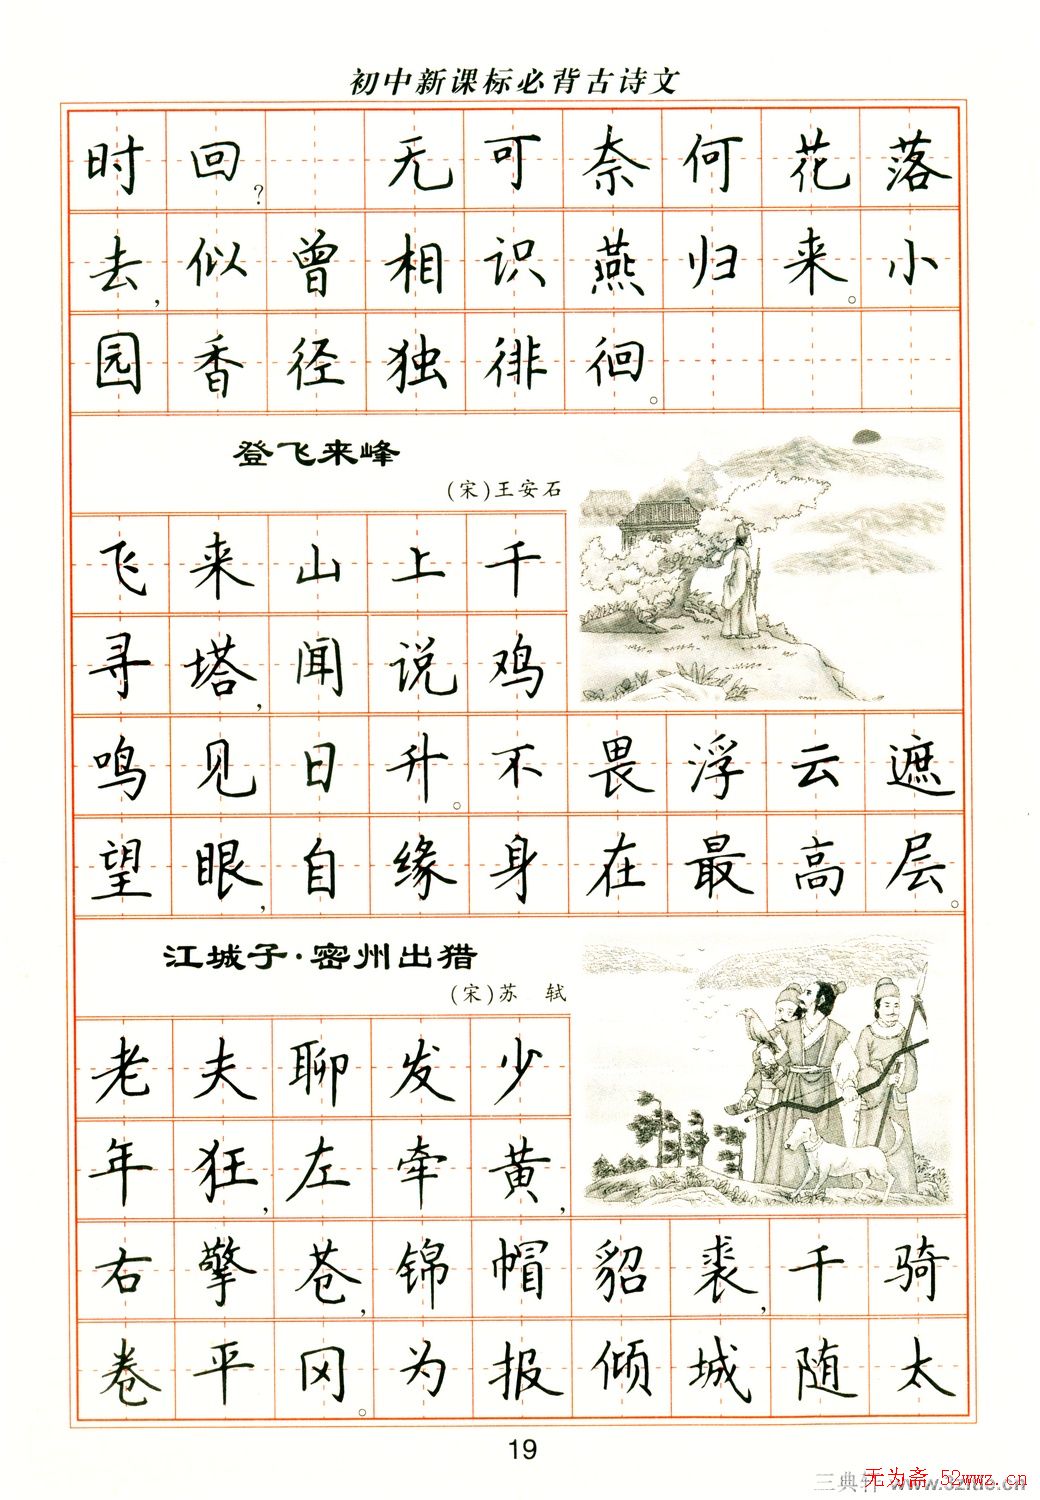 初中新课标必背古诗文
时回? 无可奈何花落
去,似曾相识燕归来。小
园香径独徘徊。
登飞来峰
(宋)王安石
飞来山上千
寻塔,闻说鸡
鸣见日升。不畏浮云遮
望眼,自缘身在最高层。
江城子·密州出猎
(宋)苏 轼
老夫聊发少
年狂,左牵黄,
右擎苍,锦帽貂裘,千骑
卷平冈。为报倾城随太
19
三典轩
无为斋 52wwz.cn